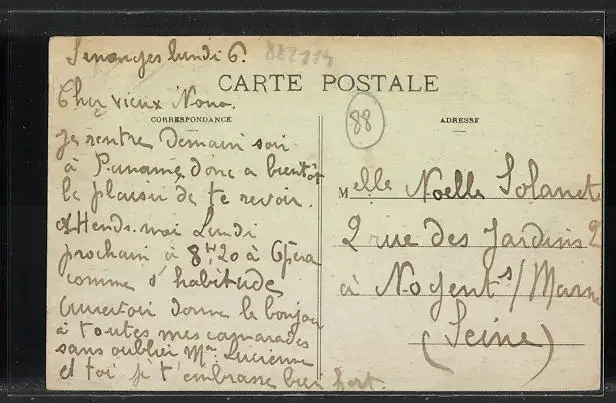 Senonges lundi 6.
882114
CARTE POSTALE
Cher vieux Nono.
CORRESPONDANCE
88
ADRESSE
Je rentre Demain soir
à Paname donc a bientôt
le plaisir de te revoir.
Attends-moi Lundi
prochain à 8h20 à Opéra
comme d'habitude
Aurevoir donne le bonjour
à toutes mes camarades
sans oublier Me Lucienne
et toi je t'embrasse bien fort.
Melle Noelle Solanet
2 rue des Jardins 2
à Nogent s/ Marne
(Seine)